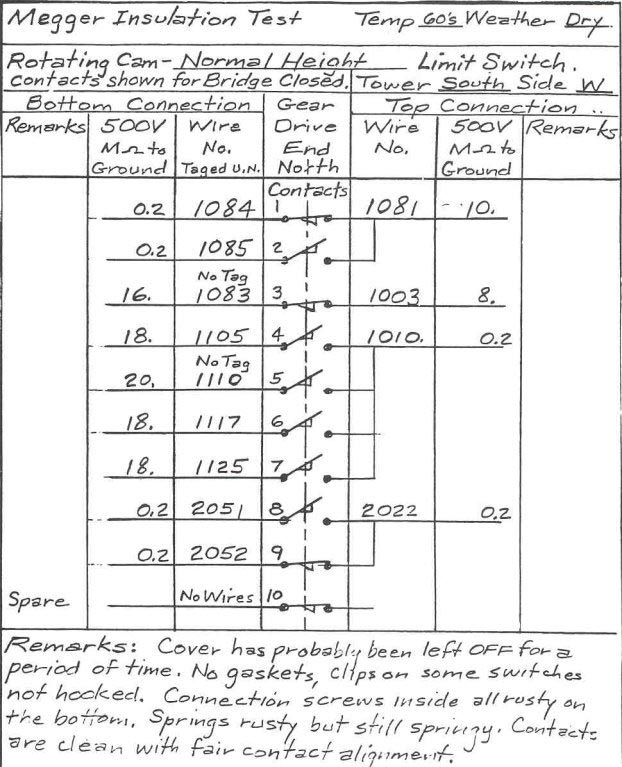 Megger Insulation Test Temp 60's Weather Dry
Rotating Cam- Normal Height Limit Switch.
contacts shown for Bridge Closed. Tower South Side W
Bottom Connection Gear Top Connection ..
Remarks 500V Wire Drive Wire 500V Remarks
MΩ to No. End No. MΩ to
Ground Taged U.N. North Ground
Contacts
0.2 1084 1 1081 10.
0.2 1085 2
No Tag
16. 1083 3 1003 8.
18. 1105 4 1010. 0.2
No Tag
20. 1110 5
18. 1117 6
18. 1125 7
0.2 2051 8 2022 0.2
0.2 2052 9
Spare No Wires 10
Remarks: Cover has probably been left OFF for a
period of time. No gaskets, clips on some switches
not hooked. Connection screws inside all rusty on
the bottom. Springs rusty but still springy. Contacts
are clean with fair contact alignment.